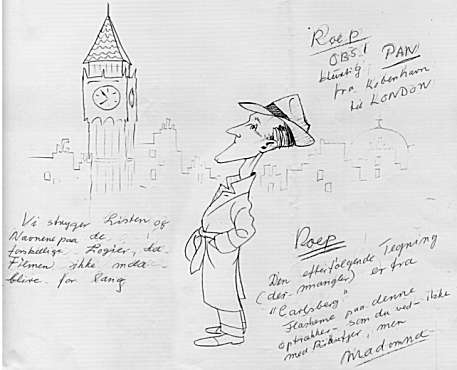 Roep
OBS!
PAN
fra København
til LONDON
Vi stryger Listen og
Navnene paa de
forskellige Logier, da
Filmen ikke maa
blive for lang
Roep
Den efterfølgende Tegning
(der mangler) er fra
"Carlsberg"
Flaskerne paa denne
optrækker som du ved ikke
med, men
Madonna